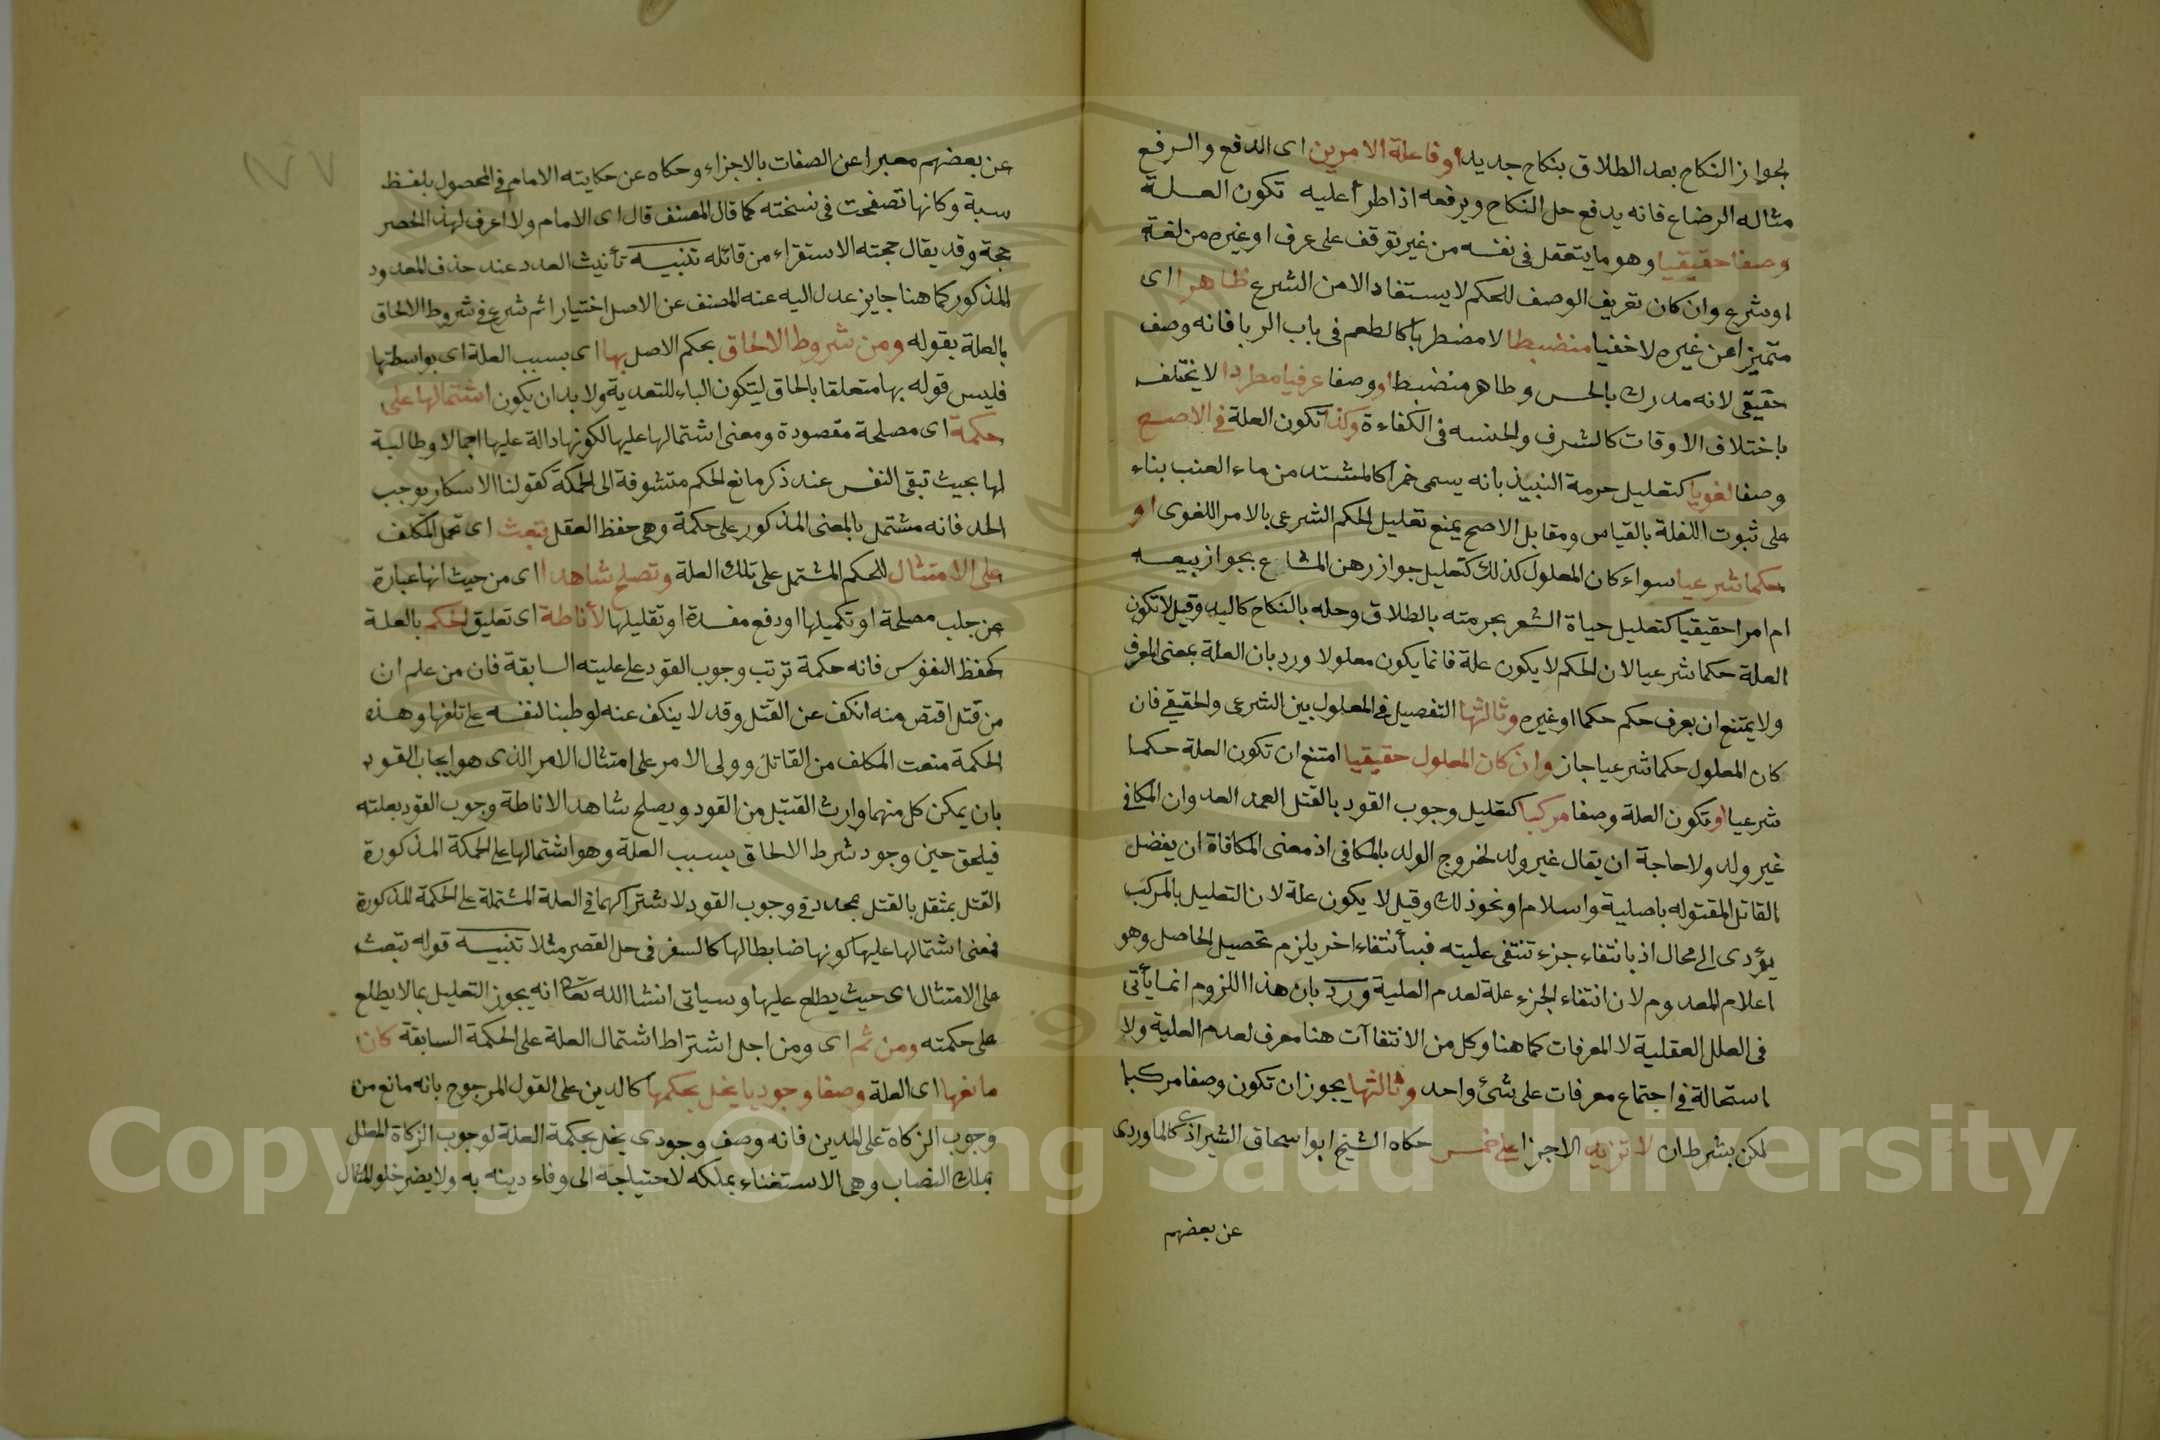 لجواز النكاح بعد الطلاق بنكاح جديد او فاعلة الامرين اى الدفع والرفع
مثاله الرضاع فانه يدفع حل النكاح ويرفعه اذا طرأ عليه تكون العلة
وصفا حقيقيا وهو ما يتعقل فى نفسه من غير توقف على عرف او غيره من لغة
او شرع وان كان تعريف الوصف للحكم لا يستفاد الا من الشرع ظاهرا اى
متميزا عن غيره لا خفيا منضبطا لا مضطربا كالطعم فى باب الربا فانه وصف
حقيقى لانه مدرك بالحس وظاهر منضبط او وصفا عرفيا مطردا لا يختلف
باختلاف الاوقات كالشرف والخسه فى الكفاءة وكذا تكون العلة فى الاصح
وصفا لغويا كتعليل حرمة النبيذ بانه يسمى خمرا كالمشتد من ماء العنب بناء
على ثبوت اللغة بالقياس ومقابل الاصح يمنع تعليل الحكم الشرعى بالامر اللغوى او
حكما شرعيا سواء كان المعلول كذلك كتعليل جواز رهن المشاع بجواز بيعه
ام امرا حقيقيا كتعليل حياة الشعر بحرمته بالطلاق وحله بالنكاح كاليد وقيل لا تكون
العلة حكما شرعيا لان الحكم لا يكون علة فانما يكون معلولا ورد بان العلة بمعنى المعرف
ولا يمتنع ان يعرف حكم حكما او غيره وثالثها التفصيل فى المعلول بين الشرعى والحقيقى فان
كان المعلول حكما شرعيا جاز وان كان المعلول حقيقيا امتنع ان تكون العلة حكما
شرعيا او تكون العلة وصفا مركبا كتعليل وجوب القود بالقتل العمد العدوان المكافى
غير ولد ولا حاجة ان يقال غير ولد لخروج الولد بالمكافى اذ معنى المكافاة ان يفضل
القاتل المقتوله باصلية واسلام او نحو ذلك وقيل لا يكون علة لان التعليل بالمركب
يؤدى الى محال اذ بانتفاء جزء تنتفى عليته فبانتفاء اخر يلزم تحصيل الحاصل وهو
اعلام المعدوم لان انتفاء الجزء علة لعدم العلية ورد بان هذا اللزوم انما يأتى
فى العلل العقلية لا المعرفات كما هنا وكل من الانتفاآت هنا معرف لعدم العلية ولا
استحالة فى اجتماع معرفات على شئ واحد وثالثها يجوز ان تكون وصفا مركبا
لكن بشرط ان لا تزيد الاجزا على خمس حكاه الشيخ ابو اسحاق الشيرازى كالماوردى
عن بعضهم
عن بعضهم معبرا عن الصفات بالاجزاء وحكاه عن حكايته الامام فى المحصول بلفظ
سبة وكانها تصفحت فى نسخته كما قال المصنف قال اى الامام ولا اعرف لهذا الحصر
حجة وقد يقال حجته الاستقراء من قائله تنبيه تأنيث العدد عند حذف المعدود
المذكور كما هنا جايز عدل اليه عنه المصنف عن الاصل اختيارا ثم شرع فى شروط الالحاق
بالعلة بقوله ومن شروط الالحاق بحكم الاصل بها اى بسبب العلة اى بواسطتها
فليس قوله بها متعلقا بالحاق لتكون الباء للتعدية ولا بد ان يكون اشتمالها على
حكمة اى مصلحة مقصودة ومعنى اشتمالها عليها لكونها دالة عليها اجمالا وطالبة
لها بحيث تبقى النفس عند ذكر مانع الحكم متشوفة الى الحكمة كقولنا الاسكار يوجب
الحد فانه مشتمل بالمعنى المذكور على حكمة وهى حفظ العقل تبعث اى تحمل المكلف
على الامتثال للحكم المشتمل على تلك العلة وتصلح شاهدا اى من حيث انها عبارة
عن جلب مصلحة او تكميلها او دفع مفسدة او تقليلها لأناطة اى تعليق الحكم بالعلة
كحفظ النفوس فانه حكمة ترتب وجوب القود على عليته السابقة فان من علم ان
من قتل اقتص منه انكف عن القتل وقد لا ينكف عنه لوطينا لنفسه على تلفها وهذه
الحكمة منعت المكلف من القاتل وولى الامر على امتثال الامر الذى هو ايجاب القود
بان يمكن كل منهما وارث القتيل من القود ويصلح شاهدا لاناطة وجوب القود بعلته
فيلحق حين وجود شرط الالحاق بسبب العلة وهو اشتمالها على الحكمة المذكورة
القتل بمثقل بالقتل بمحدد فى وجوب القود لاشتراكهما فى العلة المشتملة على الحكمة المذكورة
فمعنى اشتمالها عليها كونها ضابطا لها كالسفر فى حل القصر مثلا تنبيه قوله تبعث
على الامتثال اى حيث يطلع عليها وسياتى انشا الله تعالى انه يجوز التعليل بما لا يطلع
على حكمته ومن ثم اى ومن اجل اشتراط اشتمال العلة على الحكمة السابقة كان
مانعها اى العلة وصفا وجوديا يخل بحكمها كالدين على القول المرجوح بانه مانع من
وجوب الزكاة على المدين فانه وصف وجودى يخل بحكمة العلة لوجوب الزكاة المعلل
بملك النصاب وهى الاستغناء بملكه لاحتياجه الى وفاء دينه به ولا يضر خلو المثال
Copyright © King Saud University